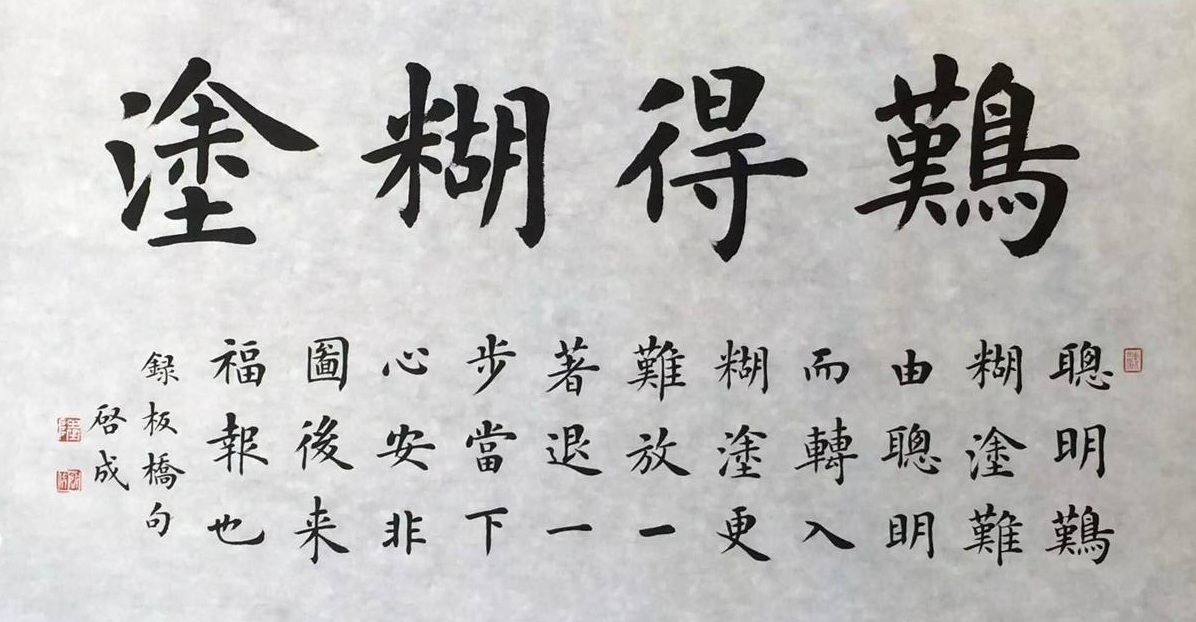 鷬得糊塗
聰明鷬
糊塗難
由聰明
而轉入
糊塗更
難放一
著退一
步當下
心安非
圖後来
福報也
録板橋句
啓成